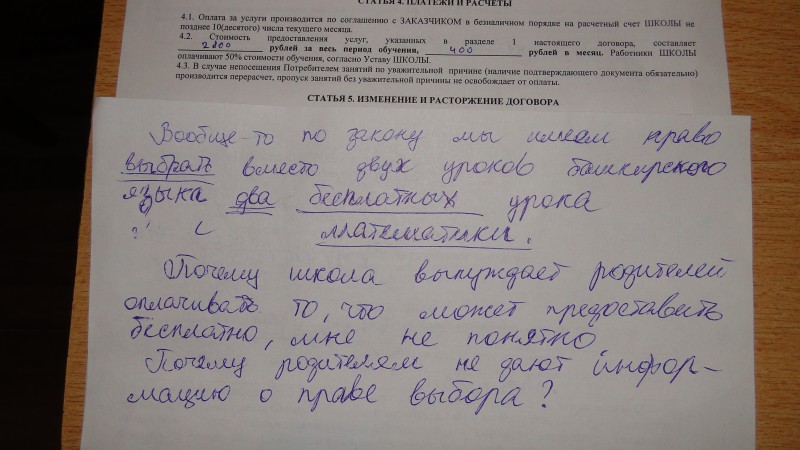 СТАТЬЯ 4. ПЛАТЕЖИ И РАСЧЕТЫ
4.1. Оплата за услуги производится по соглашению с ЗАКАЗЧИКОМ в безналичном порядке на расчетный счет ШКОЛЫ не
позднее 10(десятого) числа текущего месяца.
4.2. Стоимость предоставления услуг, указанных в разделе 1 настоящего договора, составляет
2800 рублей за весь период обучения, 400 рублей в месяц. Работники ШКОЛЫ
оплачивают 50% стоимости обучения, согласно Уставу ШКОЛЫ.
4.3. В случае непосещения Потребителем занятий по уважительной причине (наличие подтверждающего документа обязательно)
производится перерасчет, пропуск занятий без уважительной причины не освобождает от оплаты.
СТАТЬЯ 5. ИЗМЕНЕНИЕ И РАСТОРЖЕНИЕ ДОГОВОРА
Вообще-то по закону мы имеем право
выбрать вместо двух уроков башкирского
языка два бесплатных урока
математики.
Почему школа вынуждает родителей
оплачивать то, что может предоставить
бесплатно, мне не понятно
Почему родителям не дают инфор-
мацию о праве выбора?